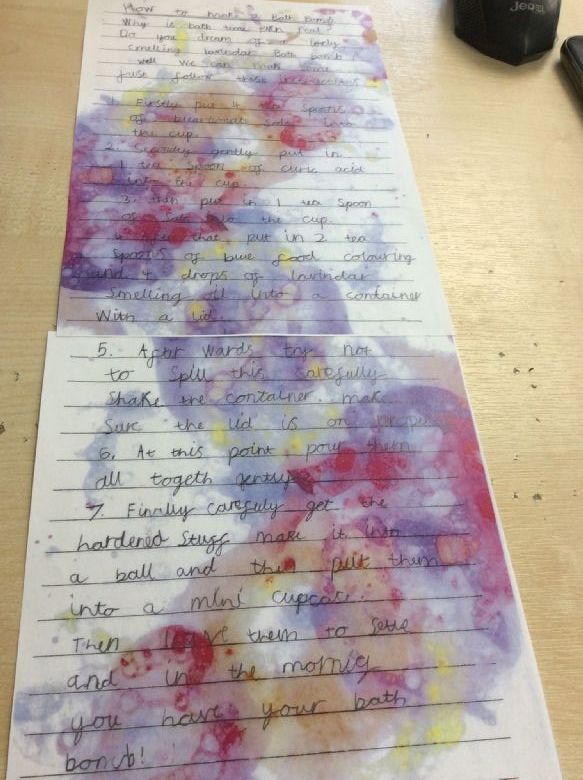 How to make a Bath Bomb
Why is bath time not fun?
Do you dream of a lovly
smelling lavindar Bath bomb
well we can make some
just follow these instructions
1. Firstly put 4 tea spoons
of bicarbonate soda into
the cup.
2. Secondly gently put in
1 tea spoon of citric acid
into the cup.
3. then put in 1 tea spoon
of salt into the cup.
4. After that put in 2 tea
spoons of blue food colouring
and 4 drops of lavindar
Smelling oil into a container
With a lid.
5. After wards try not
to spill this carefully
Shake the container. make
Sure the lid is on
6. At this point pour them
all togeth gently
7. Finally carefuly get the
hardened stuff make it into
a ball and then put them
into a mini cupcase.
Then leave them to settle
and in the mornig
you have your bath
bomb!
Jedel